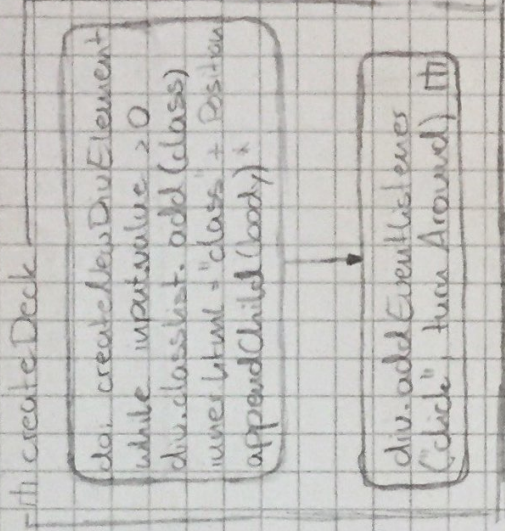 createDeck
do: createNewDivElement
while inputvalue > 0
div.classlist.add(class)
innerhtml = "class" + Position
appendChild(body)*
div.addEventlistener
("click", turn Around)